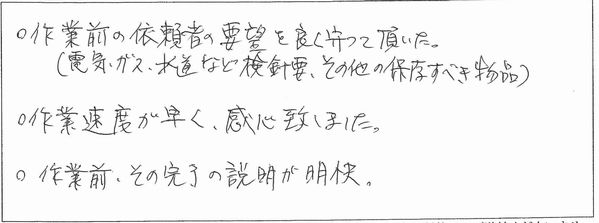 ○作業前の依頼者の要望を良く守って頂いた。
(電気、ガス、水道など検針票、その他の保存すべき物品)
○作業速度が早く、感心致しました。
○作業前、その完了の説明が明快。